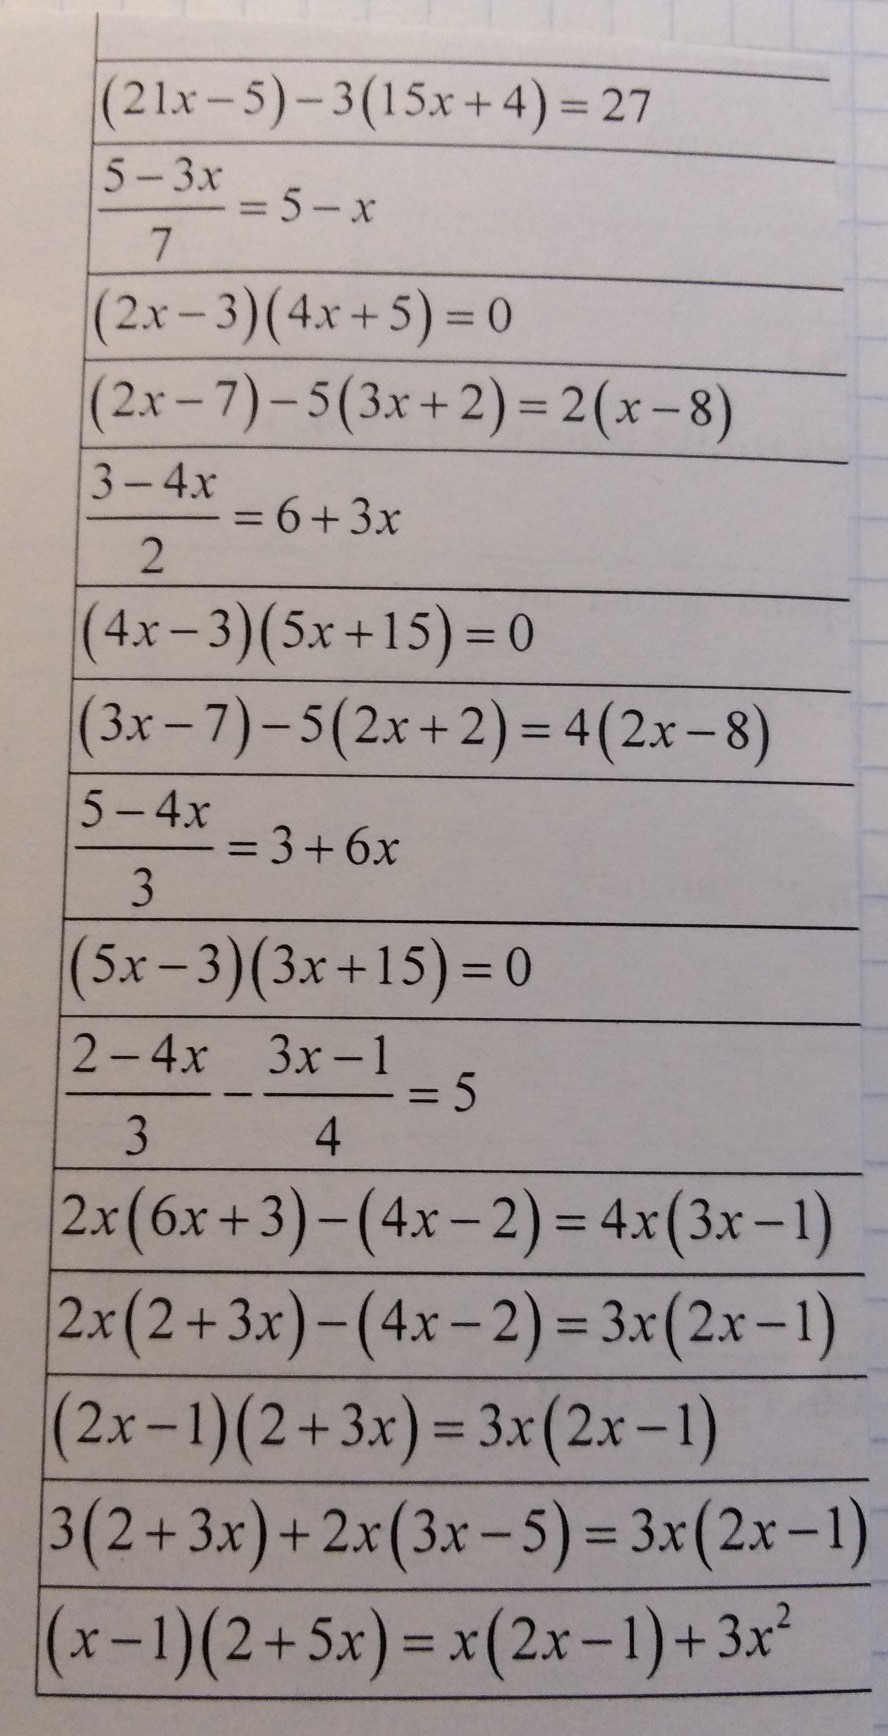 (21x − 5) − 3(15x + 4) = 27
(5 − 3x)/7 = 5 − x
(2x − 3)(4x + 5) = 0
(2x − 7) − 5(3x + 2) = 2(x − 8)
(3 − 4x)/2 = 6 + 3x
(4x − 3)(5x + 15) = 0
(3x − 7) − 5(2x + 2) = 4(2x − 8)
(5 − 4x)/3 = 3 + 6x
(5x − 3)(3x + 15) = 0
(2 − 4x)/3 − (3x − 1)/4 = 5
2x(6x + 3) − (4x − 2) = 4x(3x − 1)
2x(2 + 3x) − (4x − 2) = 3x(2x − 1)
(2x − 1)(2 + 3x) = 3x(2x − 1)
3(2 + 3x) + 2x(3x − 5) = 3x(2x − 1)
(x − 1)(2 + 5x) = x(2x − 1) + 3x²